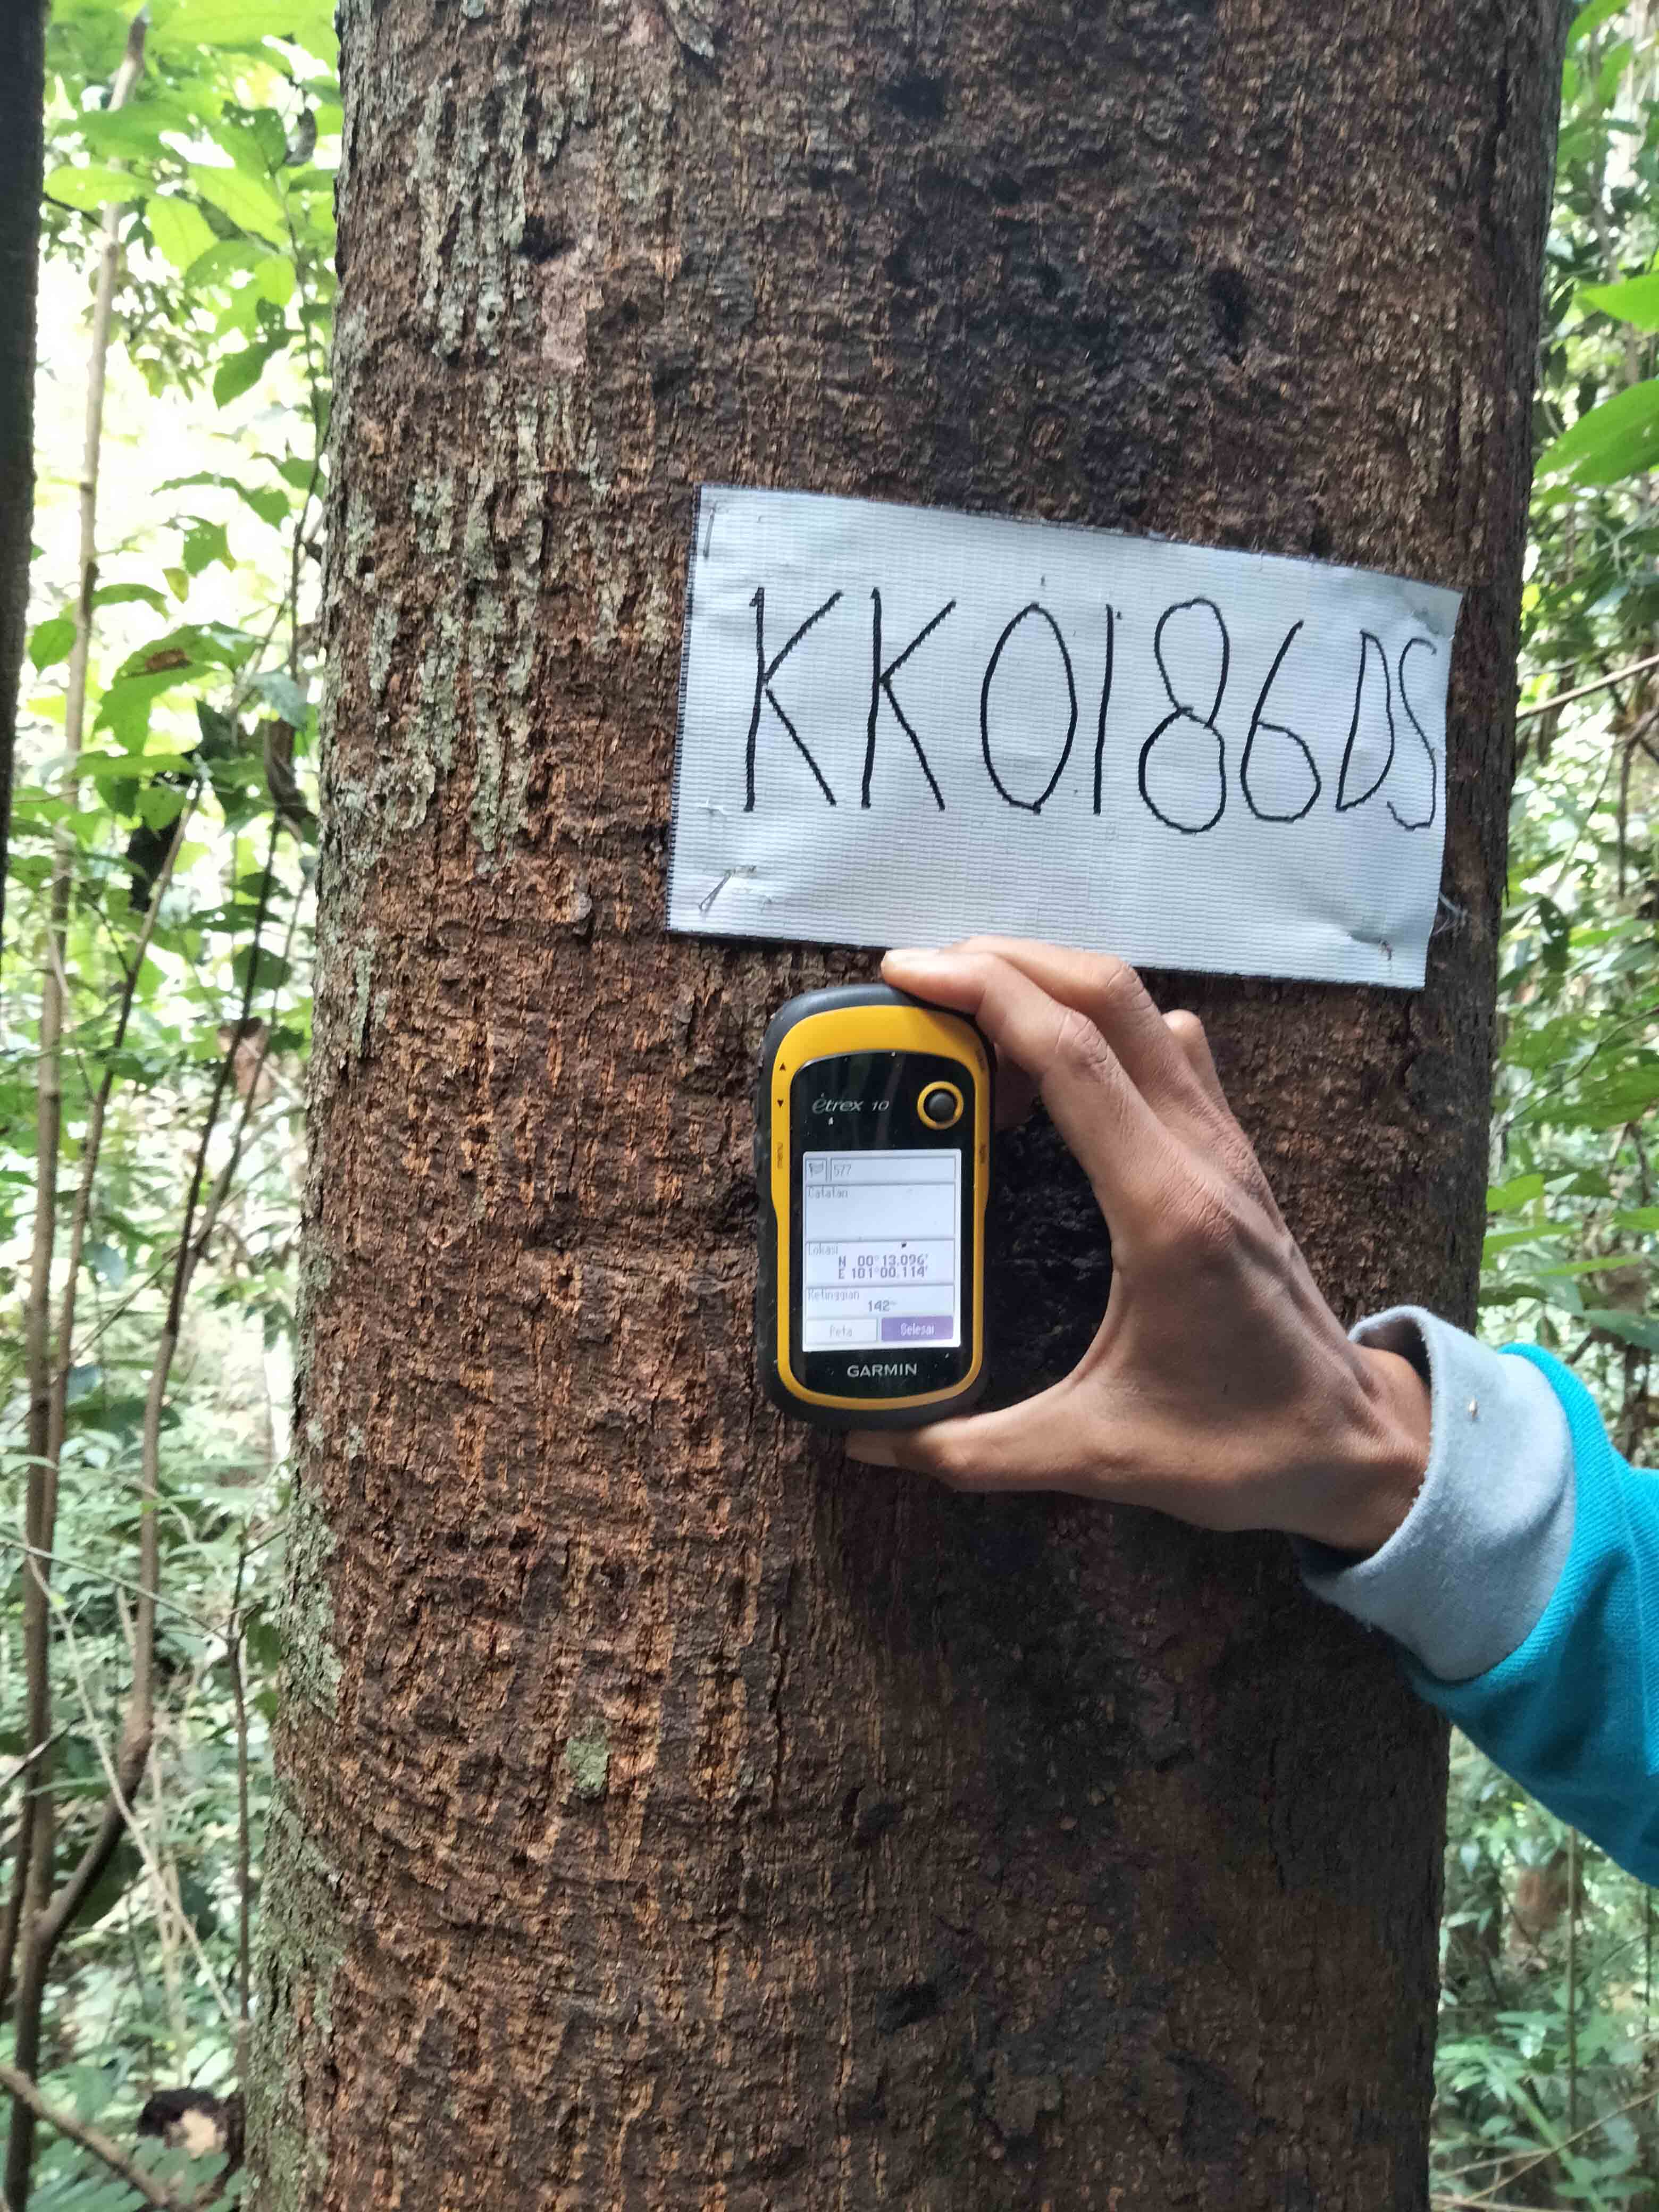 KK0186DS
etrex 10
577
Catatan
Lokasi
N 00°13.096'
E 101°00.114'
Ketinggian
142m
Peta Selesai
GARMIN